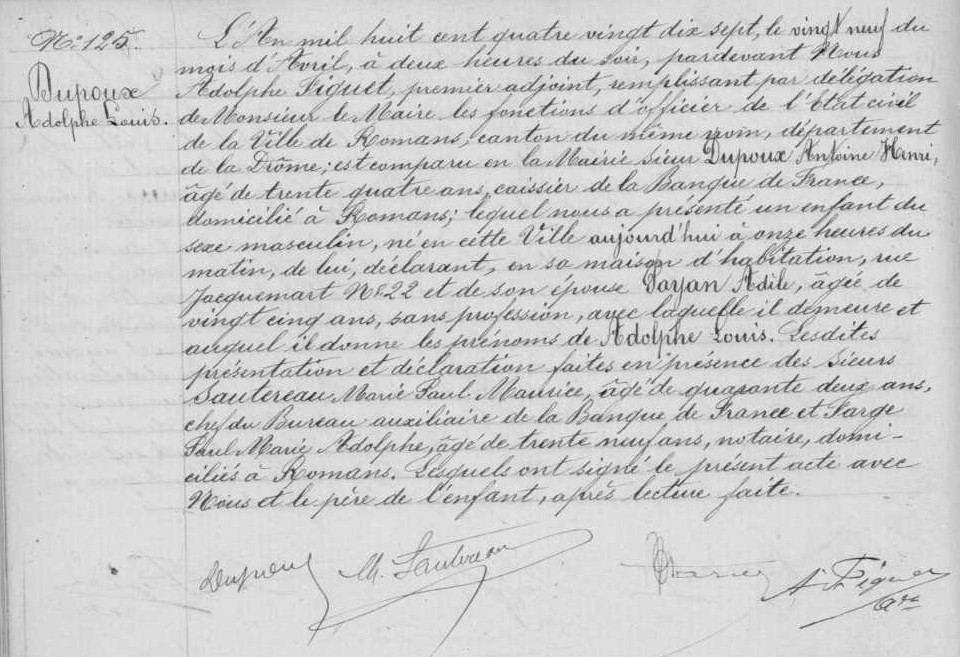 N° 125.
Dupoux
Adolphe Louis.
L'An mil huit cent quatre vingt dix sept, le vingt neuf du
mois d'Avril, à deux heures du soir, pardevant Nous
Adolphe Figuet, premier adjoint, remplissant par délégation
de Monsieur le Maire les fonctions d'officier de l'Etat civil
de la Ville de Romans, canton du même nom, département
de la Drôme; est comparu en la Mairie sieur Dupoux Antoine Henri,
âgé de trente quatre ans, caissier de la Banque de France,
domicilié à Romans; lequel nous a présenté un enfant du
sexe masculin, né en cette Ville aujourd'hui à onze heures du
matin, de lui, déclarant, en sa maison d'habitation, rue
Jacquemart N° 22 et de son épouse Payan Adèle, âgée de
vingt cinq ans, sans profession, avec laquelle il demeure et
auquel il donne les prénoms de Adolphe Louis. Lesdites
présentation et déclaration faites en présence des sieurs
Sautereau Marie Paul Maurice, âgé de quarante deux ans,
chef du Bureau auxiliaire de la Banque de France et Farge
Paul Marie Adolphe, âgé de trente neuf ans, notaire, domi-
ciliés à Romans. Lesquels ont signé le présent acte avec
Nous et le père de l'enfant, après lecture faite.
Dupoux M. Sautereau A. Figuet